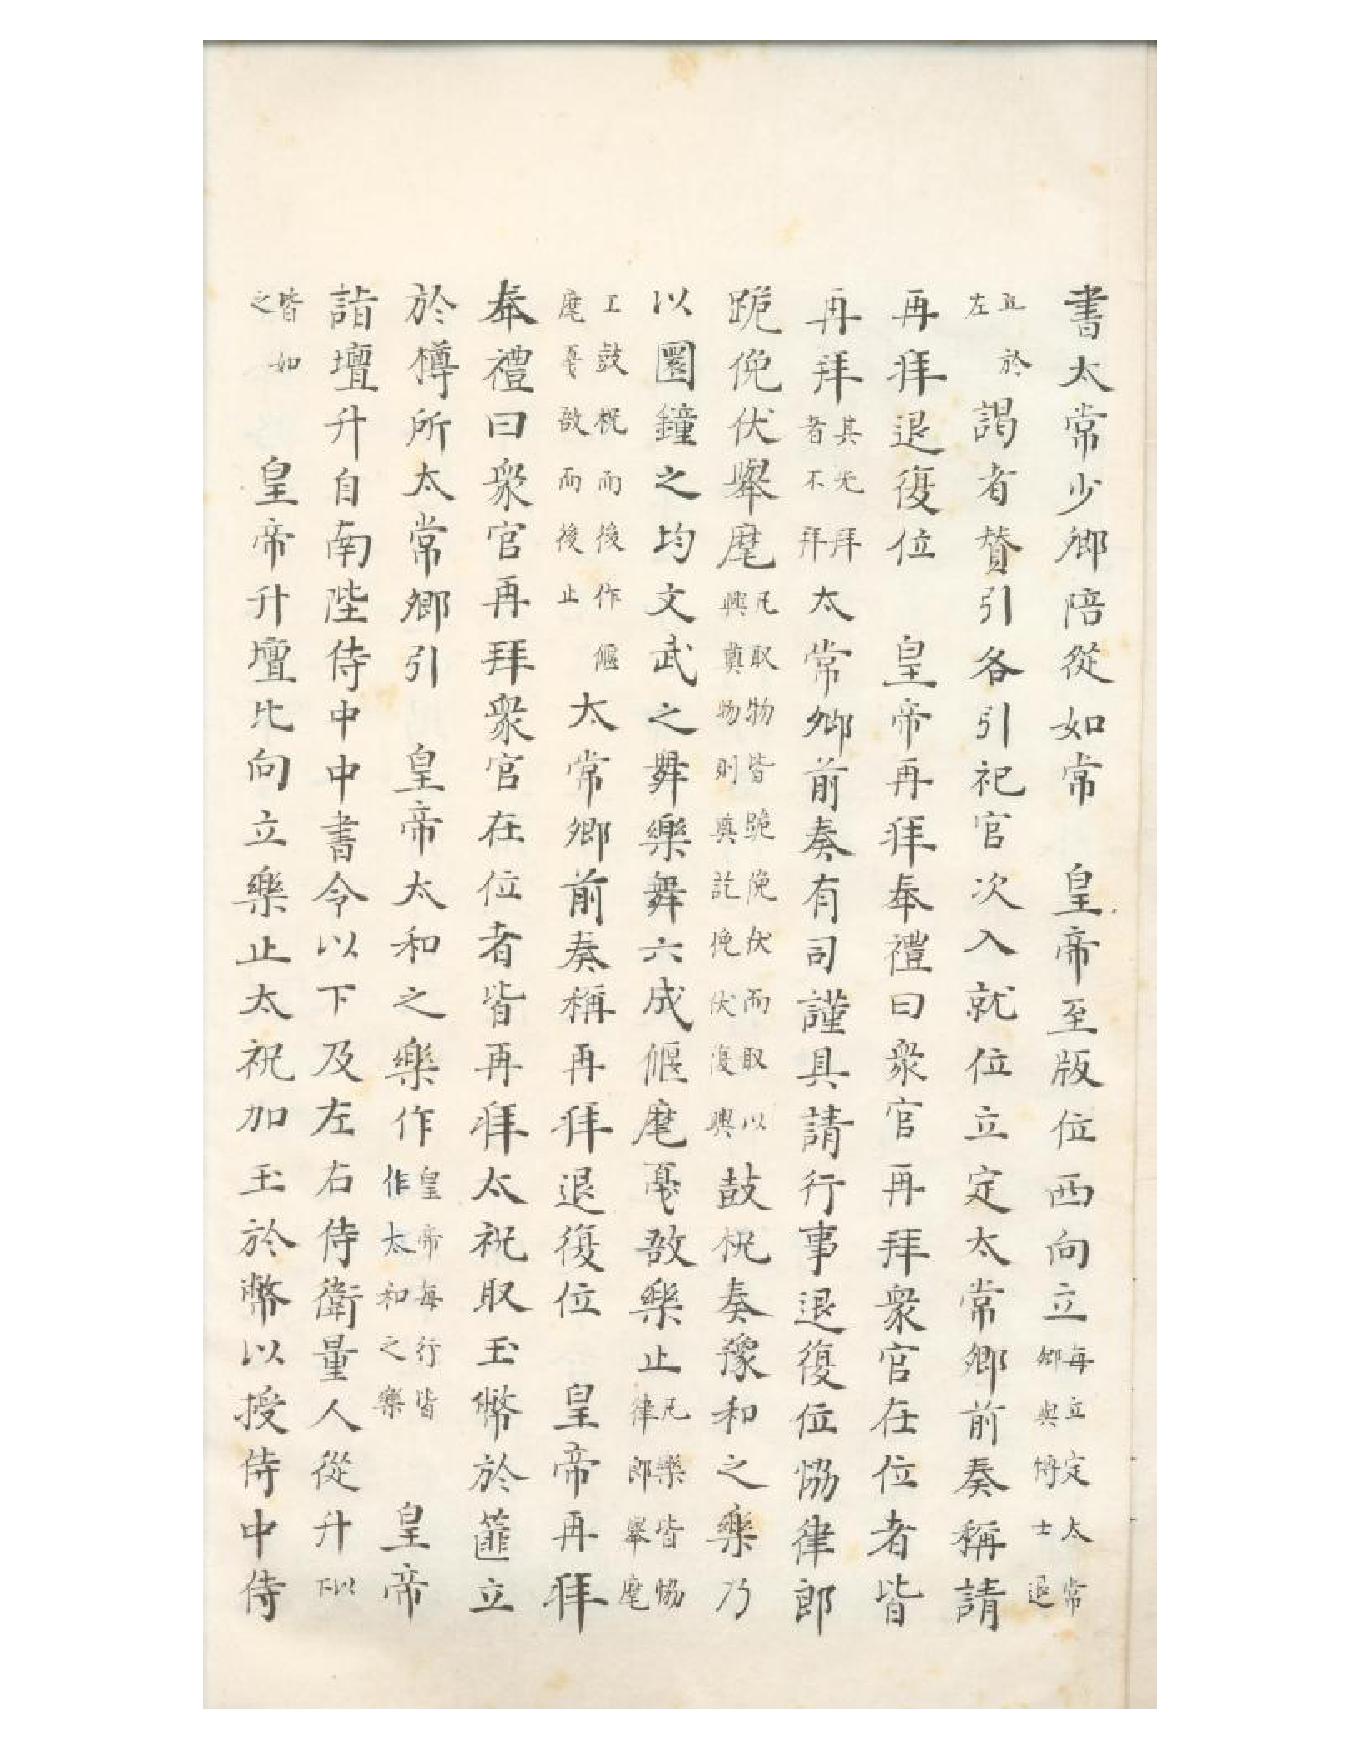 書太常少卿陪從如常　皇帝至版位西向立每立定太常卿與博士退
立於左謁者贊引各引祀官次入就位立定太常卿前奏稱請
再拜退復位　皇帝再拜奉禮曰衆官再拜衆官在位者皆
再拜其先拜者不拜太常卿前奏有司謹具請行事退復位恊律郎
跪俛伏舉麾凡取物皆跪俛伏而取以興奠物則奠訖俛伏復興鼓柷奏豫和之樂乃
以圜鐘之均文武之舞樂舞六成偃麾戞敔樂止凡樂皆恊律郎舉麾
工鼓柷而後作偃麾戞敔而後止太常卿前奏稱再拜退復位　皇帝再拜
奉禮曰衆官再拜衆官在位者皆再拜太祝取玉幣於篚立
於樽所太常卿引　皇帝太和之樂作皇帝每行皆作太和之樂　皇帝
詣壇升自南陛侍中中書令以下及左右侍衛量人從升以下
皆如之　皇帝升壇北向立樂止太祝加玉於幣以授侍中侍